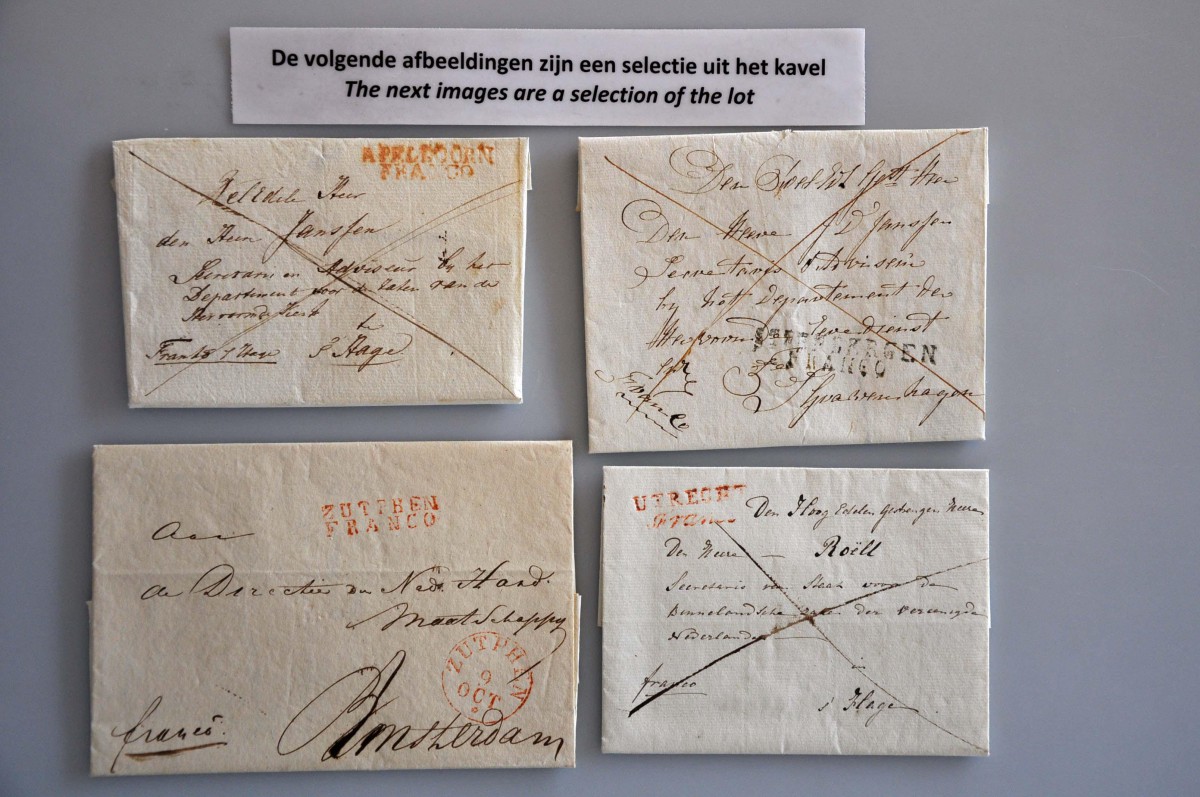 De volgende afbeeldingen zijn een selectie uit het kavel
The next images are a selection of the lot
APELDOORN
FRANCO
Heer
den Heer Janssen
en Adviseur by het
Departement voor de Zaken van de
te
Franko s'Hage s'Hage
Den Heere
Heere D'Janssen
by hett Departement der
STEENBERGEN
FRANCO
Franco
ZUTPHEN
FRANCO
Aan
de Directie der Nedr. Hand.
Maatschappy
ZUTPHEN
9
OCT
Amsterdam
franco
UTRECHT
Franco
Den Hoog Edelen Gestrengen Heere
Den Heere — Roëll
Secretaris van Staat voor de
Binnelandsche zaken der Vereenigde
Nederlanden
in
franco
s Hage